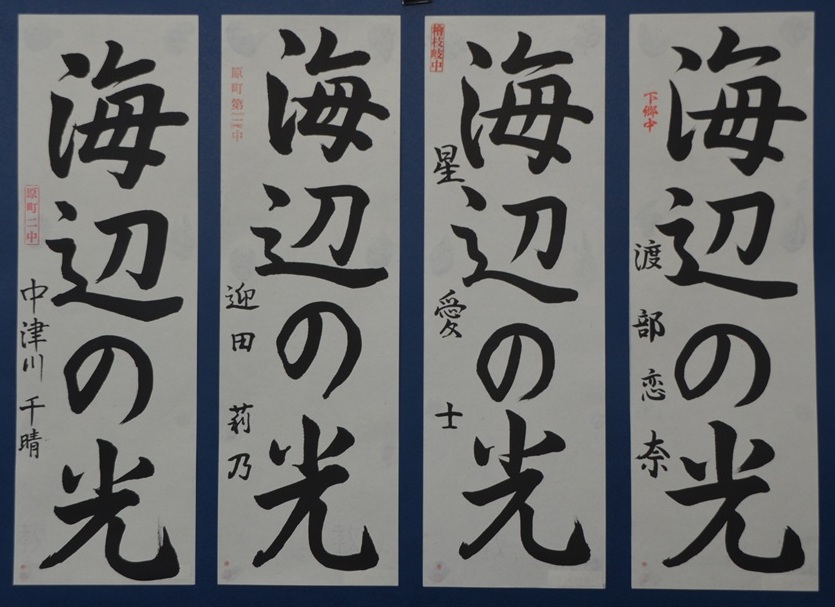 海辺の光
下郷中
渡部恋奈
海辺の光
檜枝岐中
星愛士
海辺の光
原町第二中
迎田莉乃
海辺の光
原町二中
中津川千晴